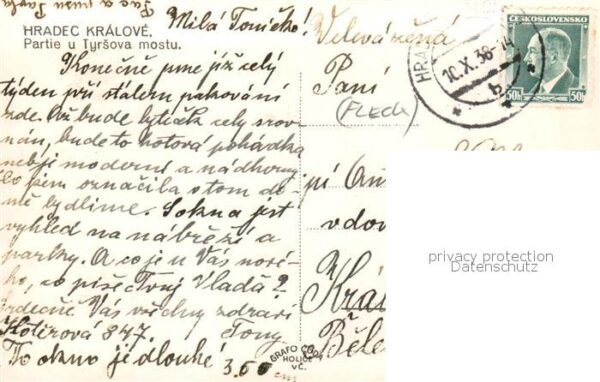 Milá Toničko!
HRADEC KRÁLOVÉ.
Partie u Tyršova mostu.
Konečně jsme již celý
týden při stálém pakování
zde. Až bude byteček celý srov-
nán, bude to hotová pohádka
nejmoderní a nádherný.
Co jsem označila v tom do-
mě bydlíme. Z okna jest
vyhled na nábřeží a
parky. A co je u Vás nové-
ho, co píše Tvůj Vláďa?
Srdečně Vás všechny zdraví
847. Tony
To okno je dlouhé
3.60 cm
Velevážená
Paní
(FLECK)
pí
vdov
Krá
Běle
ČESKOSLOVENSKO
50h 50h
HR
10.X.36
b
GRAFO ČUDA
HOLICE
v Č.
privacy protection
Datenschutz